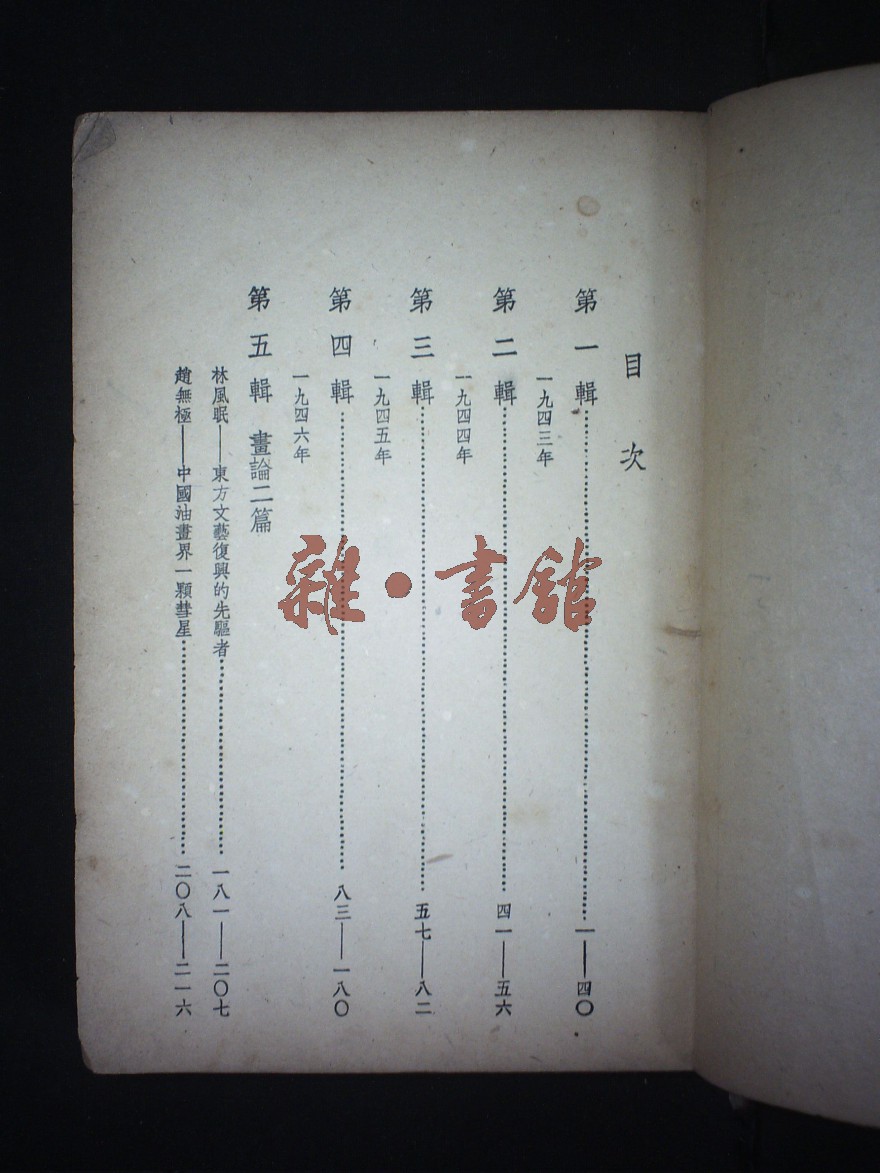 目次
第一輯……一——四〇
一九四三年
第二輯……四一——五六
一九四四年
第三輯……五七——八二
一九四五年
第四輯……八三——一八〇
一九四六年
第五輯 畫論二篇
林風眠——東方文藝復興的先驅者……一八一——二〇七
趙無極——中國油畫界一顆彗星……二〇八——二一六
雜·書館